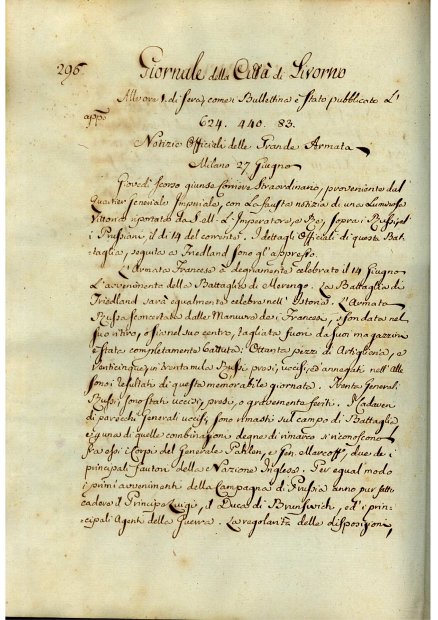 296
Giornale della Città di Livorno
Alle ore 1. di Sera, come Bullettino è stato pubblicato L'
app.o
624. 440. 83.
Notizie Officiali della Grande Armata
Milano 27 Giugno
Giovedì scorso giunse Corriere Straordinario, proveniente dal
Quartier Generale Imperiale, con La fausta notizia di una Luminosa
Vittoria riportata da S. M. L'Imperatore, e Re, sopra i Russi, ed
i Prussiani, il dì 14 del corrente. I dettagli Officiali di questa Bat-
taglia, seguita a Friedland sono gl'appresso.
L'Armata Francese à degnamente celebrato il 14 Giugno
L'avvenimento della Battaglia di Marengo. La Battaglia di
Friedland sarà egualmente celebre nell'Istoria. L'Armata
Russa sconcertata dalle Manuvre dei Francesi, e sfondata nel
suo ritiro, o sia nel suo centro, tagliata fuori da suoi magazzini
è stata completamente battuta: Ottanta pezzi di Artiglieria, e
venticinque, in trenta mila Russi presi, uccisi, ed annegati nell'Alle
sono i resultati di questa memorabile giornata. Trenta Generali
Russi, sono stati uccisi, presi, o gravemente feriti. I Cadaveri
di parecchi Generali uccisi, sono rimasti sul campo di Battaglia
e una di quelle combinazioni degne di rimarco si riconoscono
fra essi i Corpi del Generale Pahlen, e Gen. Marcoff, due dei
principali fautori della Nazione Inglese. Per egual modo
i primi avvenimenti della Campagna di Prussia anno pur fatti
cadere il Principe Luigi, il Duca di Brunswich, ed i prin-
cipali Agenti della Guerra. La regolarità delle disposizioni,